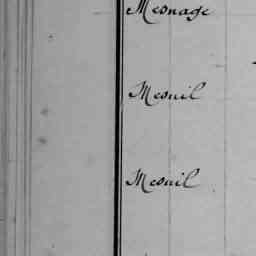 Mesnage
Mesnil
Mesnil